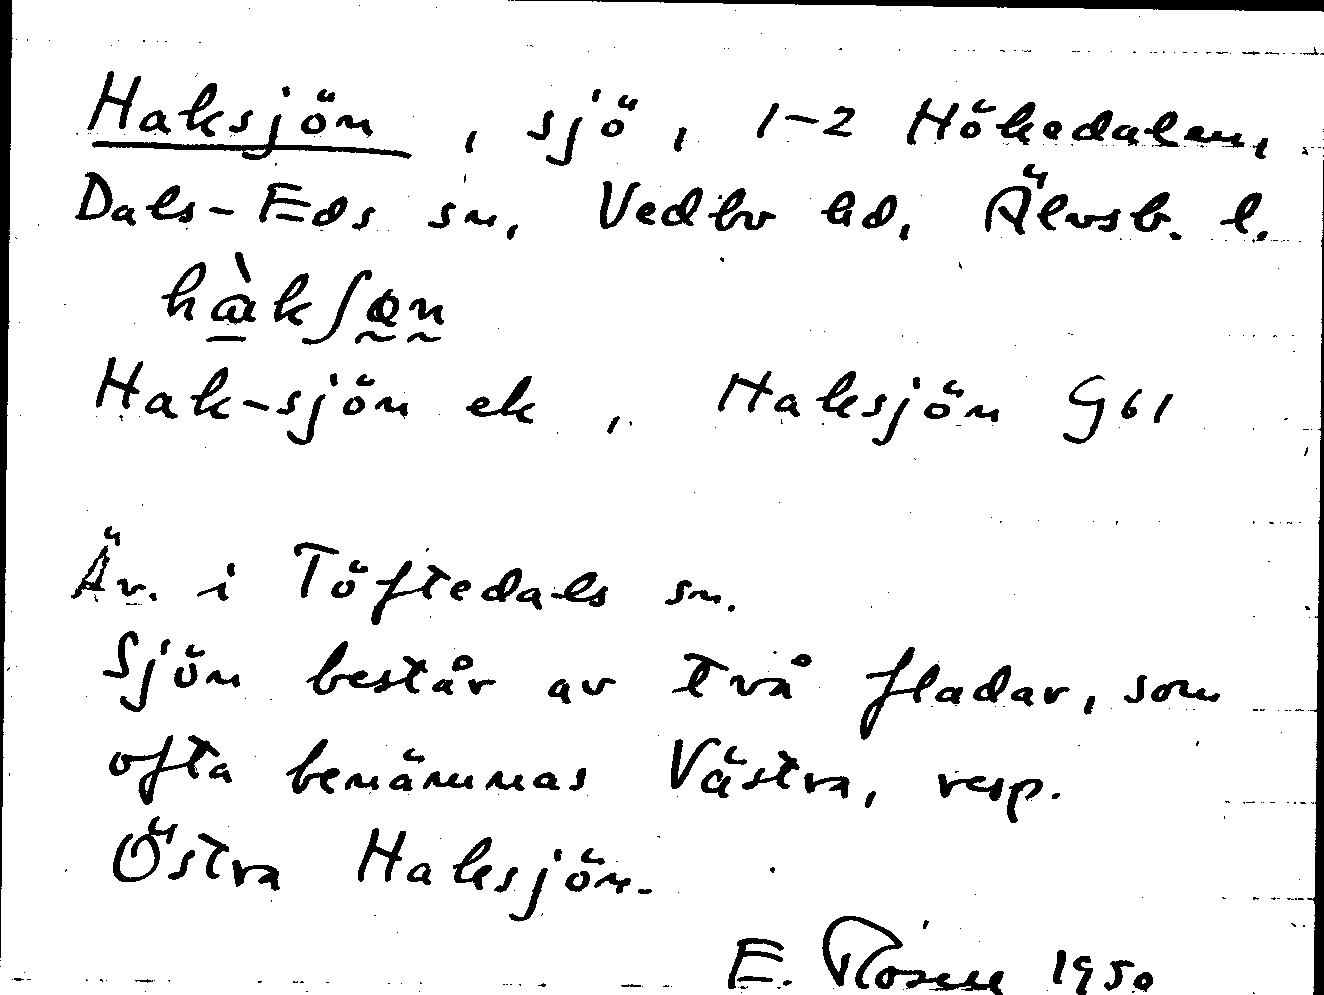 Haksjön, sjö, 1-2 Hökedalen,
Dals-Eds sn, Vedbo hd, Älvsb. l.
hàkʃøn
Hak-sjön ek, Haksjön G61
Äv. i Töftedals sn.
Sjön består av två fladar, som
ofta benämnas Västra, resp.
Östra Haksjön.
E. Rosell 1950